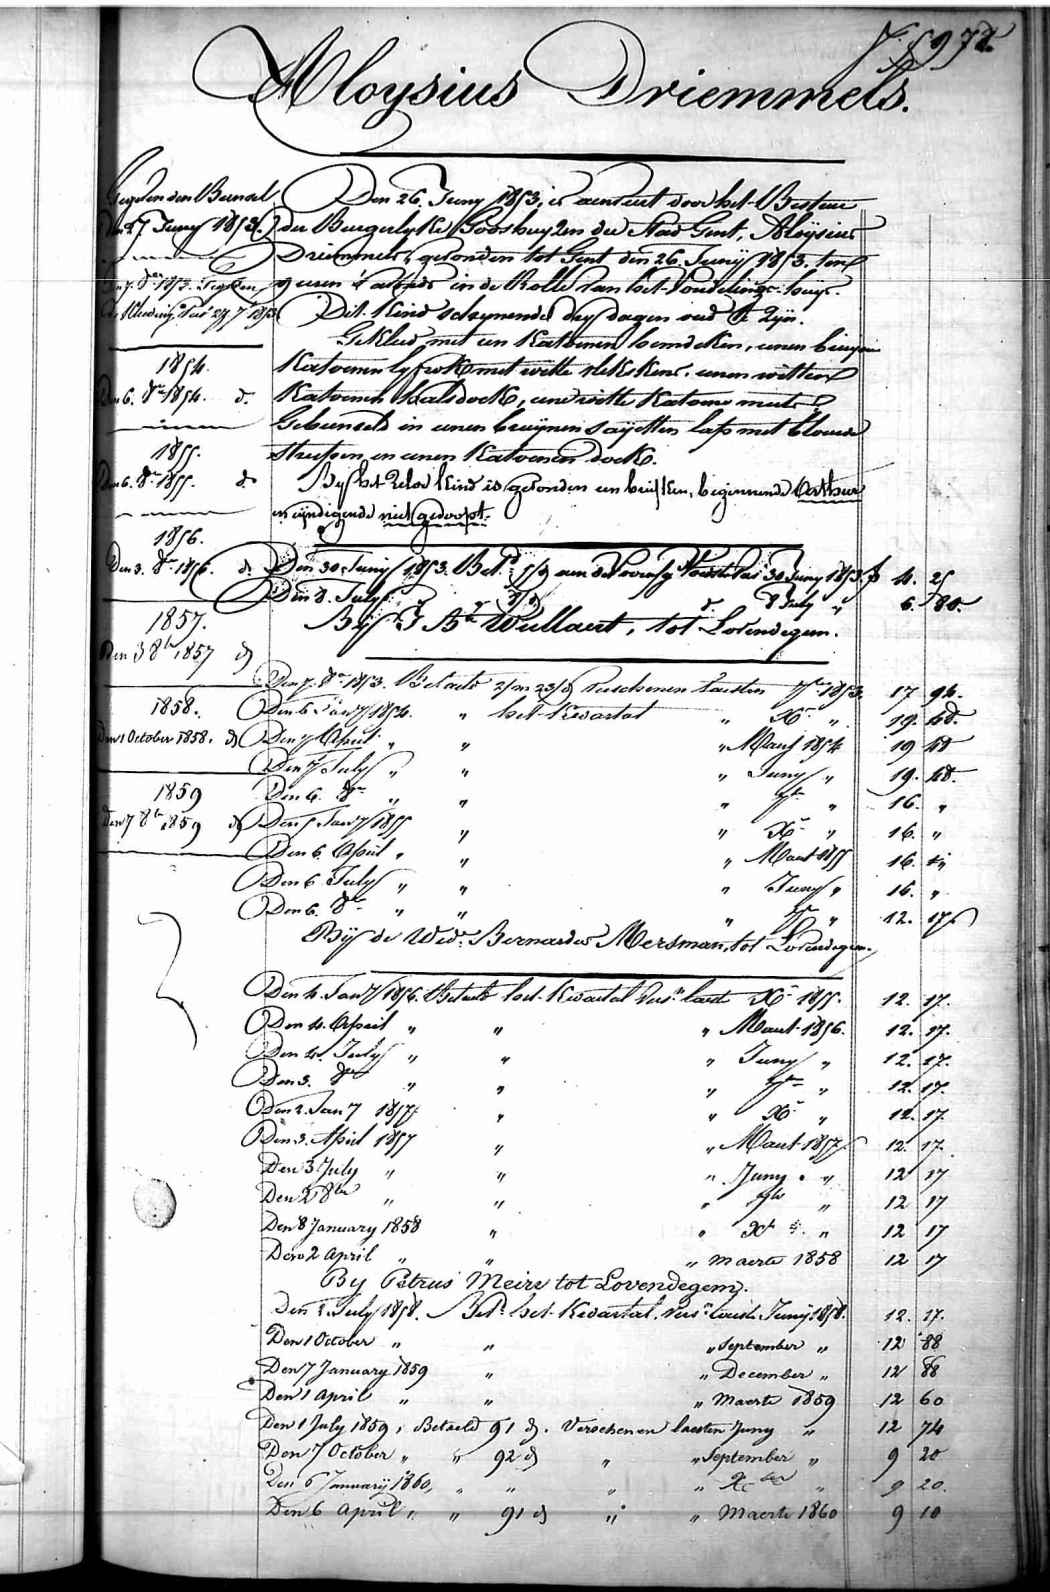 f. 972.
Aloysius Driemmels.
Gegeven den Bunsel
den 27 Juny 1853.
den 7. 8ber 1853. Tegen
de Kleeding
1854.
Den 6. 8er 1854. do.
1855.
Den 6. 8er 1855. do
1856.
Den 3. 8er 1856. do.
1857.
Den 3 8ber 1857 do
1858.
Den 1 October 1858. do
1859
Den 7 8ber 1859 do
Den 26. Juny 1853, is aenveert door het Bestuur
der Burgerlyke Godshuyzen der Stad Gent, Aloysius
Driemmels, gevonden tot Gent den 26. Juny 1853. ten
9 uren 's avonds in de Rolle van het Vondelings-huys.
Dit Kind schynende dry dagen oud te zyn.
Gekleed met een Katoenen hemdeken, eenen bruynen
Katoenen lyfrok met witte vlekskens, eenen witten
Katoenen halsdoek, eene witte Katoene muts.
Gebunseld in eenen bruynen sayetten lap met blauwe
streepen, en eenen Katoenen doek.
By het zelve Kind is gevonden een briefken, beginnende Arthur
en eyndigende niet gedoopt.
Den 30. Juny 1853. Bet.d 5/9 aen de Voorsz Voedster 30 Juny 1853. f 4. 25
Den 8. July. 8/9 do 8 July " 6. 80.
By J. Bte Wullaert, tot Lovendegem.
Den 7. 8er 1853. Betaelt 2/m 23/d verschenen laesten 7bre 1853. 17 94.
Den 6 Jan.y 1854. " het Kwartal " Xr " 19. 48.
Den 7 April " " " Maert 1854 19 48
Den 7 July " " " Juny " 19. 48.
Den 6. 8er " " " 7bre " 16. "
Den 5 Jan.y 1855 " " Xr " 16. "
Den 6. April " " " Maert 1855 16. "
Den 6 July " " " Juny " 16. "
Den 6. 8er " " " 7bre " 12. 17.
By de Wede Bernardus Mersman, tot Lovendegem.
Den 4. Jan.y 1856. Betaelt het Kwartal vers.n laest Xr 1855. 12. 17.
Den 4. April " " " Maert 1856. 12. 17.
Den 4. July " " " Juny " 12. 17.
Den 3. 8er " " " 7bre " 12. 17.
Den 2. Jan.y 1857. " " Xr " 12. 17.
Den 3. April 1857 " " Maert 1857 12. 17.
Den 3 July " " " Juny " 12 17
Den 2 8ber " " " 7bre " 12 17
Den 8 January 1858 " " Xr " 12 17
Den 2 April " " " Maerte 1858 12 17
By Petrus Meire tot Lovendegem.
Den 2 July 1858. Bet. het Kwartal vers.n laest Juny 1858. 12. 17.
Den 1 October " " " September " 12 88
Den 7 January 1859 " " December " 12 88
Den 1 April " " " Maerte 1859 12 60
Den 1 July 1859, Betaeld 91 d. Verschenen laesten Juny " 12 74
Den 7 October " " 92 d " " September " 9 20
Den 6 Januarij 1860, " " " " Xber " 9 20.
Den 6 April " " 91 d " " Maerte 1860 9 10